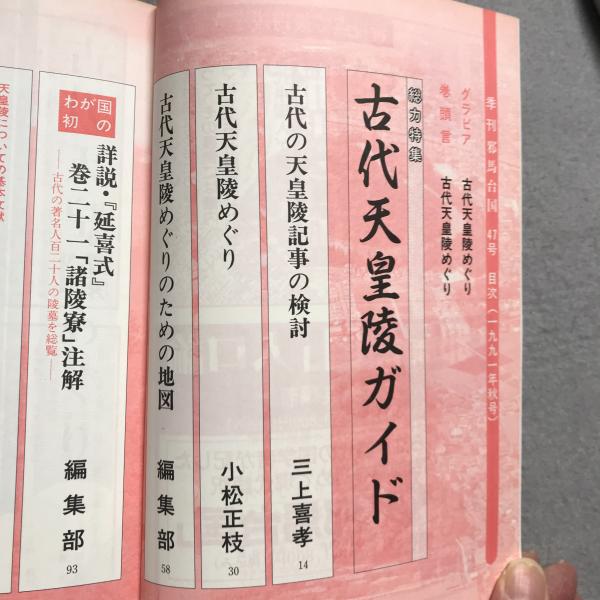 季刊邪馬台国 47号 目次(一九九一年秋号)
グラビア 古代天皇陵めぐり
巻頭言 古代天皇陵めぐり
総力特集
古代天皇陵ガイド
古代の天皇陵記事の検討 三上喜孝 14
古代天皇陵めぐり 小松正枝 30
古代天皇陵めぐりのための地図 編集部 58
わが国初の
詳説・『延喜式』
巻二十一「諸陵寮」注解 編集部 93
──古代の著名人百二十人の陵墓を総覧──
天皇陵についての基本文献